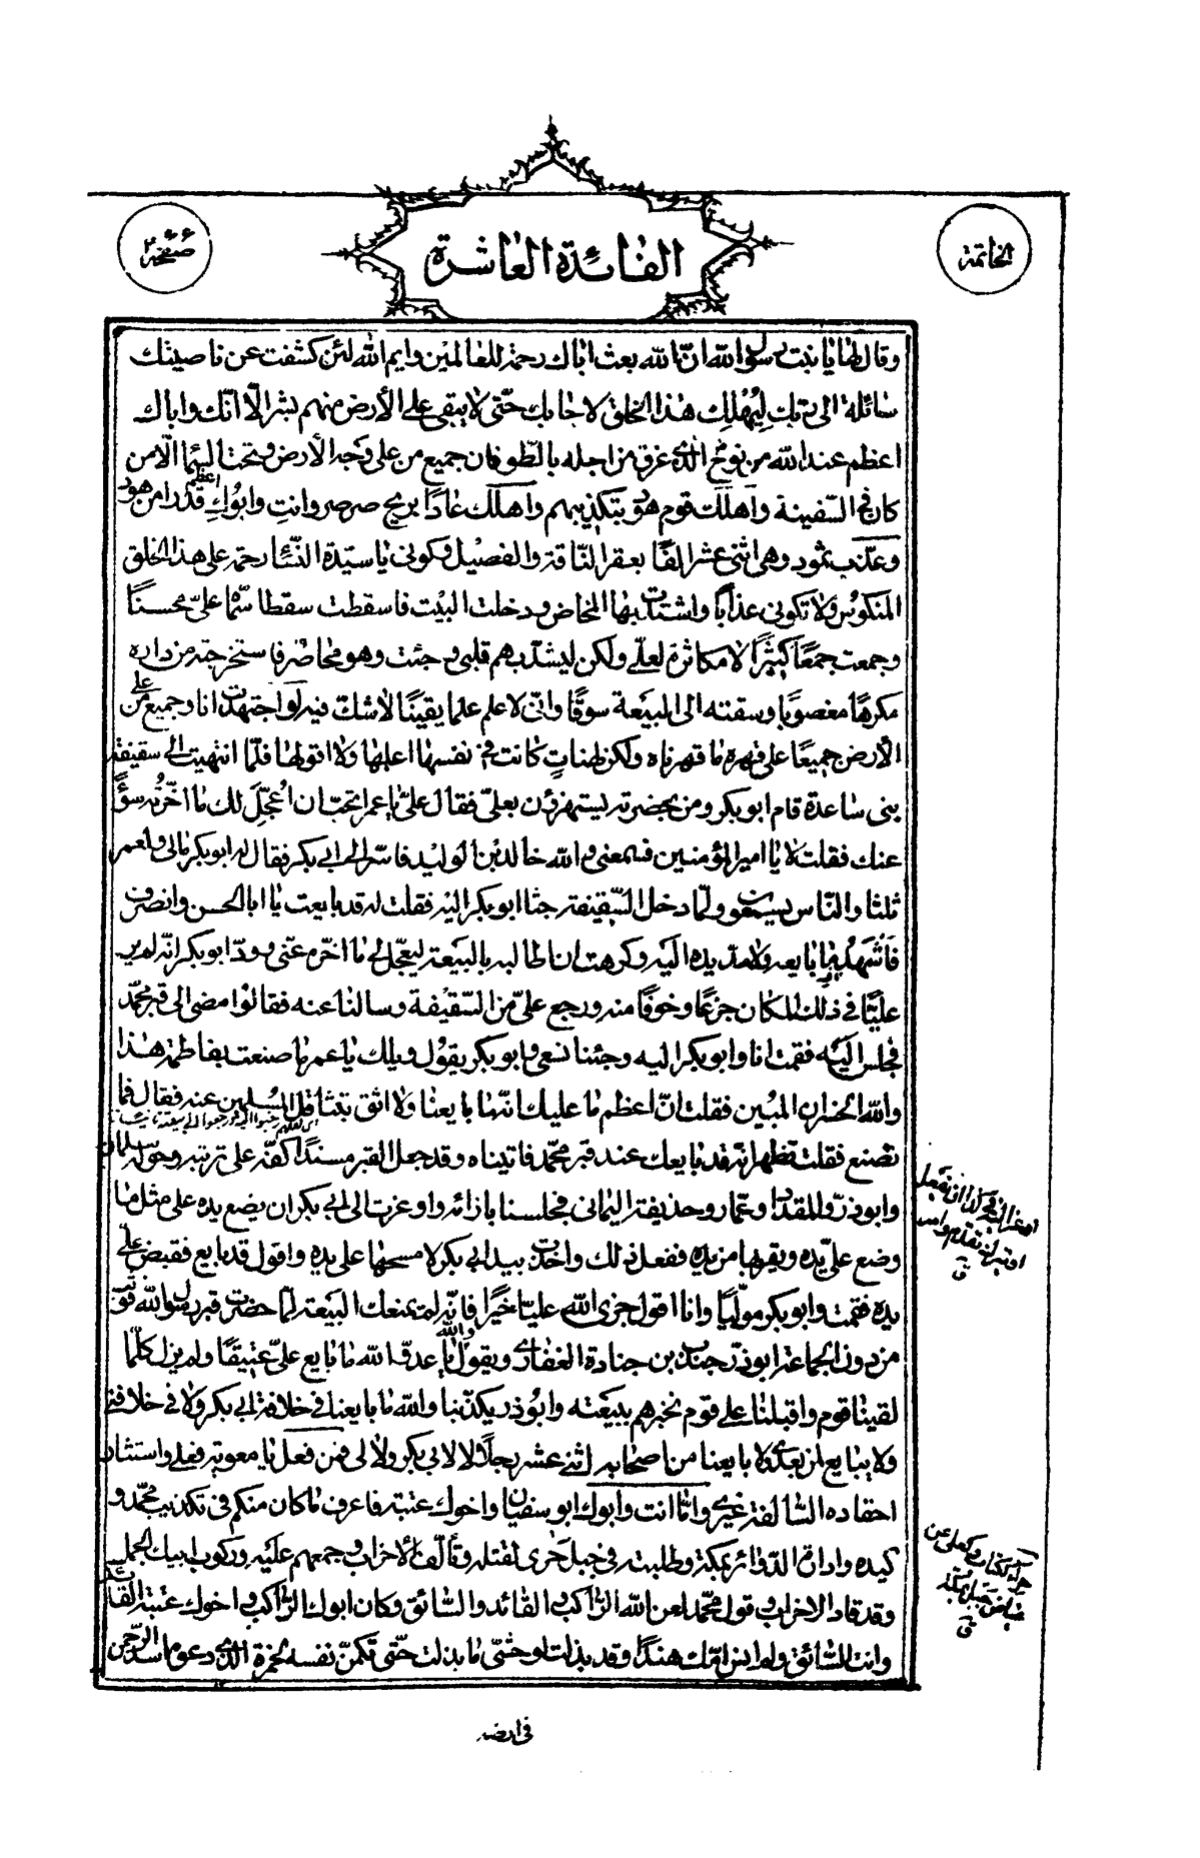 الخاتمة
الفائدة العاشرة
صفحة
وقال لها يا بنت رسول الله ان الله بعث اباك رحمة للعالمين وايم الله لئن كشفت عن ناصيتك
سائلة الى ربك ليهلك هذا الخلق لاجابك حتى لا يبقى على الأرض منهم بشر الا انك واباك
اعظم عند الله من نوح الذى غرق من اجله بالطوفان جميع من على وجه الأرض وتحت السماء الا من
كان فى السفينة واهلك قوم هود بتكذيبهم واهلك عادا بريح صرصر وانت وابوك اعظم قدرا من هود
وعذب ثمود وهى اثنى عشر الفا بعقر الناقة والفصيل فكونى يا سيدة النساء رحمة على هذا الخلق
المنكوس ولا تكونى عذابا واشتد بها المخاض ودخلت البيت فاسقطت سقطا سماه على محسنا
وجمعت جمعا كثيرا لا مكاثرة لعلى ولكن ليشد بهم قلبى وجئت وهو محاصر فاستخرجته من داره
مكرها مغصوبا وسقته الى البيعة سوقا وانى لاعلم علما يقينا لا شك فيه لو اجتهدت انا وجميع من على
الأرض جميعا على قهره ما قهرناه ولكن لهنات كانت فى نفسه اعلمها ولا اقولها فلما انتهيت الى سقيفة
بنى ساعدة قام ابو بكر ومن بحضرته يستهزؤن بعلى فقال على يا عمر اتحب ان اعجل لك ما اخرته سؤا
عنك فقلت لا يا امير المؤمنين فسمعنى والله خالد بن الوليد فاسرع الى ابى بكر فقال له ابو بكر مالى ولعمر
ثلثا والناس يسمعون ولما دخل السقيفة جثا ابو بكر اليه فقلت له قد بايعت يا ابا الحسن وانصرف
فاشهد ما بايعه ولا مد يده اليه وكرهت ان اطالبه بالبيعة ليعجل لى ما اخره عنى وود ابو بكر انه لم ير
عليا فى ذلك المكان جزعا وخوفا منه ورجع على من السقيفة وسالنا عنه فقالوا مضى الى قبر محمد
فجلس اليه فقمت انا وابو بكر اليه وجئنا نسعى وابو بكر يقول ويلك يا عمر ما صنعت بفاطمة هذا
والله الخسران المبين فقلت ان اعظم ما عليك انه ما بايعنا ولا اثق بتثاقل المسلمين عنه فقال فما
تصنع فقلت تظهر انه قد بايعك عند قبر محمد فاتيناه وقد جعل القبر مسندا كفه على تربته وحوله سلمان
وابوذر والمقداد وعمار وحذيفة اليمانى فجلسنا بازائه واوعزت الى ابى بكر ان يضع يده على مثل ما
وضع على يده ويقربها من يده ففعل ذلك واخذت بيد ابى بكر لامسحها على يده واقول قد بايع فقبض على
يده فقمت وابو بكر موليا وانا اقول جزى الله عليا خيرا فانه لم يمنعك البيعة لما حضرت قبر رسول الله فوثب
من دون الجماعة ابوذر جندب بن جنادة الغفارى ويقول والله يا عدو الله ما بايع على عتيقا ولم يزل كلما
لقينا قوم واقبلنا على قوم نخبرهم ببيعته وابوذر يكذبنا والله ما بايعنا فى خلافة ابى بكر ولا فى خلافتى
ولا يبايع لمن بعدى ولا بايعنا من اصحابه اثنى عشر رجلا لا لابى بكر ولا لى فمن فعل يا معوية فعلى واستشار
احقاده السالفة غيرى واما انت وابوك ابو سفيان واخوك عتبة فاعرف ما كان منكم فى تكذيب محمد و
كيده وادارة الدوائر بمكة وطلبته فى جبل حرى لقتله وتألف الاحزاب وجمعهم عليه وركوب ابيك الجمل
وقد قاد الاحزاب وقول محمد لعن الله الراكب والقائد والسائق وكان ابوك الراكب واخوك عتبة القائد
وانت السائق ولم انس امك هندا وقد بذلت لوحشى ما بذلت حتى تكمن نفسه لحمزة الذى دعوه اسد الرحمن
فى ارضه